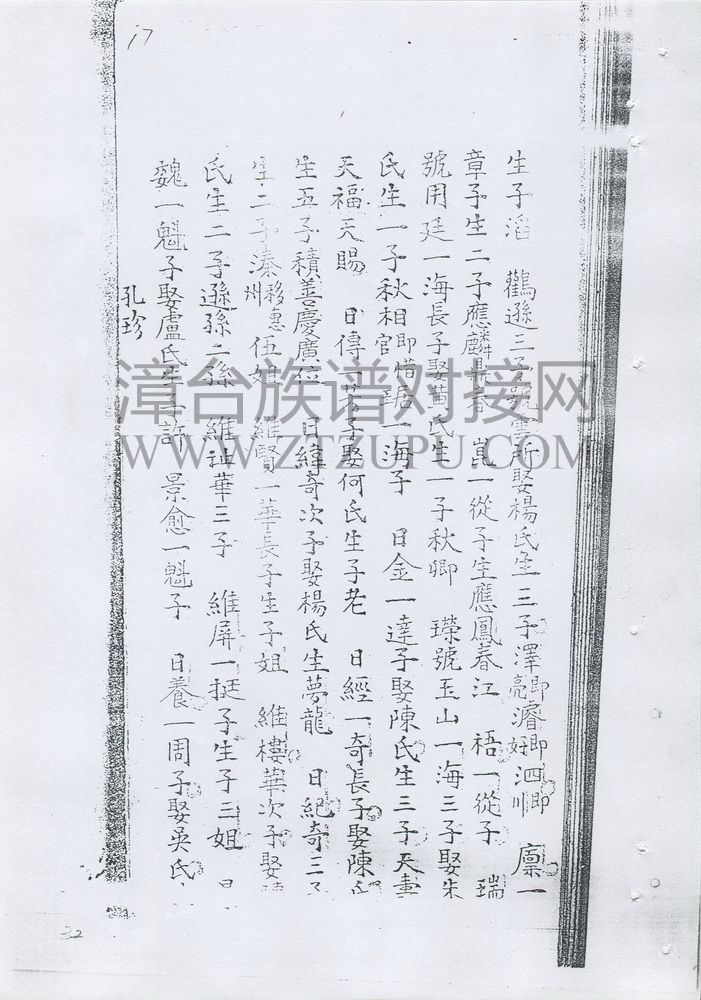 17
生子滔 鸛遜三子號雲所娶楊氏生三子澤即亮濬即好泗即川 廩一
章子生二子應麟長春 崑一從子生應鳳春江 梧一從子 瑞
號用廷一海長子娶黃氏生一子秋卿 璨號玉山一海三子娶朱
氏生一子秋相即官 一海子 日金一達子娶陳氏生三子天壽
天福天賜 日傳一 子娶何氏生子老 日經一奇長子娶陳氏
生五子積善慶廣位 日緯奇次子娶楊氏生夢龍 日紀奇三子
生二子溱移惠州伍姐 維賢一華長子生子姐 維樓華次子娶
氏生二子遜孫二孫 維 華三子 維屏一挺子生子三姐
魏一魁子娶盧氏生子許 景愈一魁子 日養一周子娶吳氏
孔珍
32
漳台族谱对接网
WWW.ZTZUPU.COM